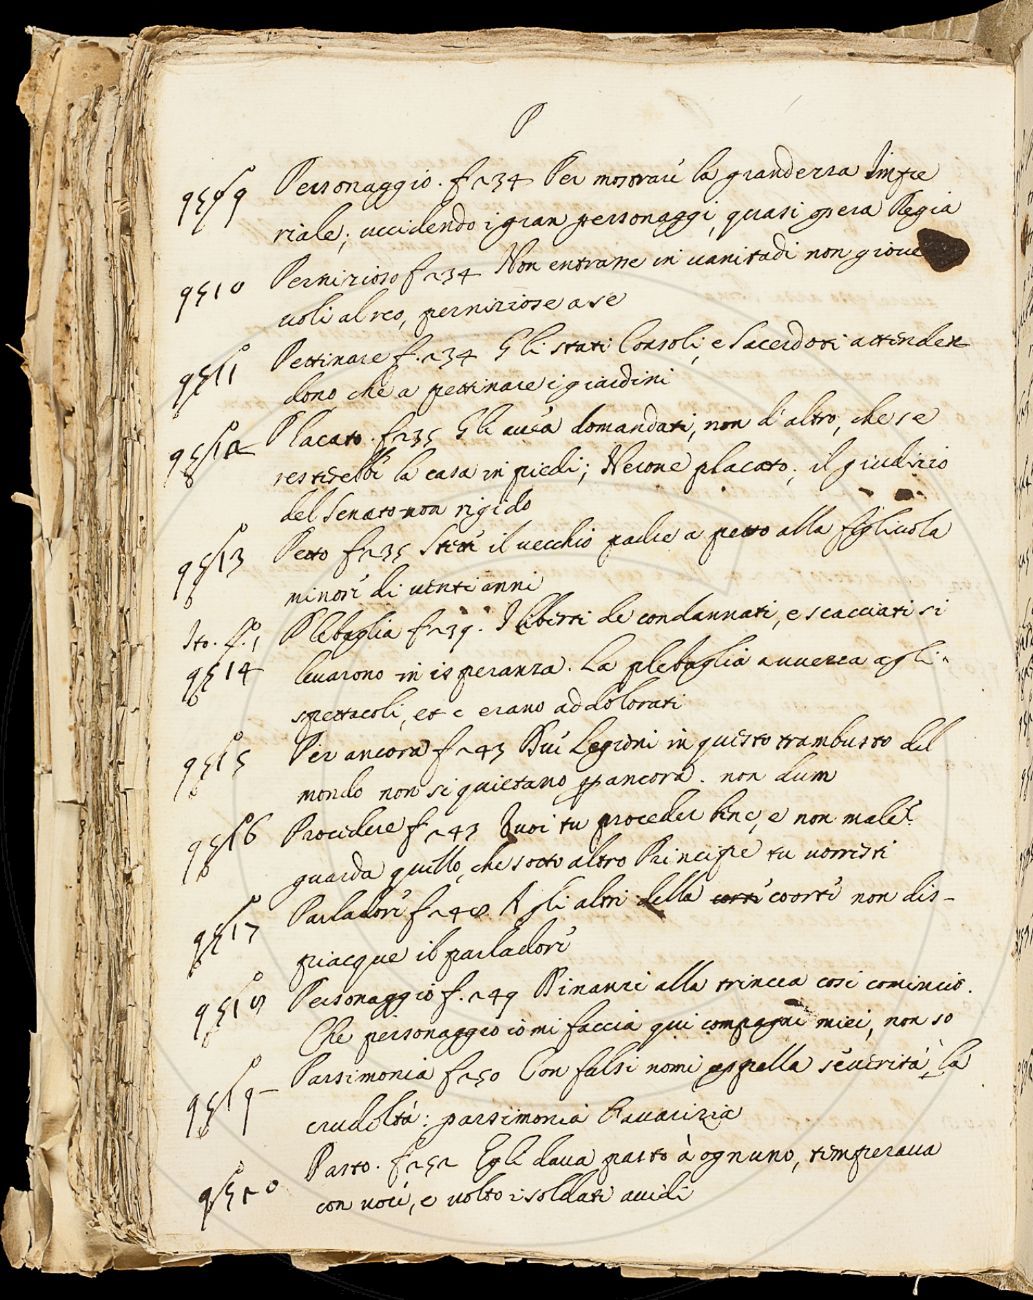 P
Personaggio. f 234 Per mostrare la grandezza Impe
riale; uccidendo i gran personaggi, quasi opera Regia
Pernizioso f 234 Non entrasse in vanitadi non giove
voli al reo, perniziose a se
Pettinare f. 234 Gli stati Consoli, e Sacerdoti attenden
dono che a pettinare i giardini
Placato. f 235 Gli avea domandati, non d'altro, che se
resterebbe la casa in piedi; Nerone placato, il giudizio
del Senato non rigido
Petto f 235 Stette il vecchio padre a petto alla figliuola
minore di venti anni
Plebaglia f 239. I liberti de condannati, e scacciati si
levarono in isperanza. La plebaglia avvezza agli
spettacoli, et c erano addolorati
Per ancora f 243 Due Legioni in questo trambusto del
mondo non si quietano p ancora. non dum
Procedere f 243 Vuoi tu proceder bene, e non male?
guarda quello, che sotto altro Principe tu vorresti
Parladore f 248 A gli altri della coorte non dis-
piacque il parladore
Personaggio f. 249 Dinanzi alla trincea cosi cominciò.
Che personaggio io mi faccia qui compagni miei, non so
Parsimonia f 250 Con falsi nomi appella severità, la
crudeltà: parsimonia l'avarizia
Pasto. f 252 Egli dava pasto à ognuno, temperava
con voce, e volto i soldati avidi